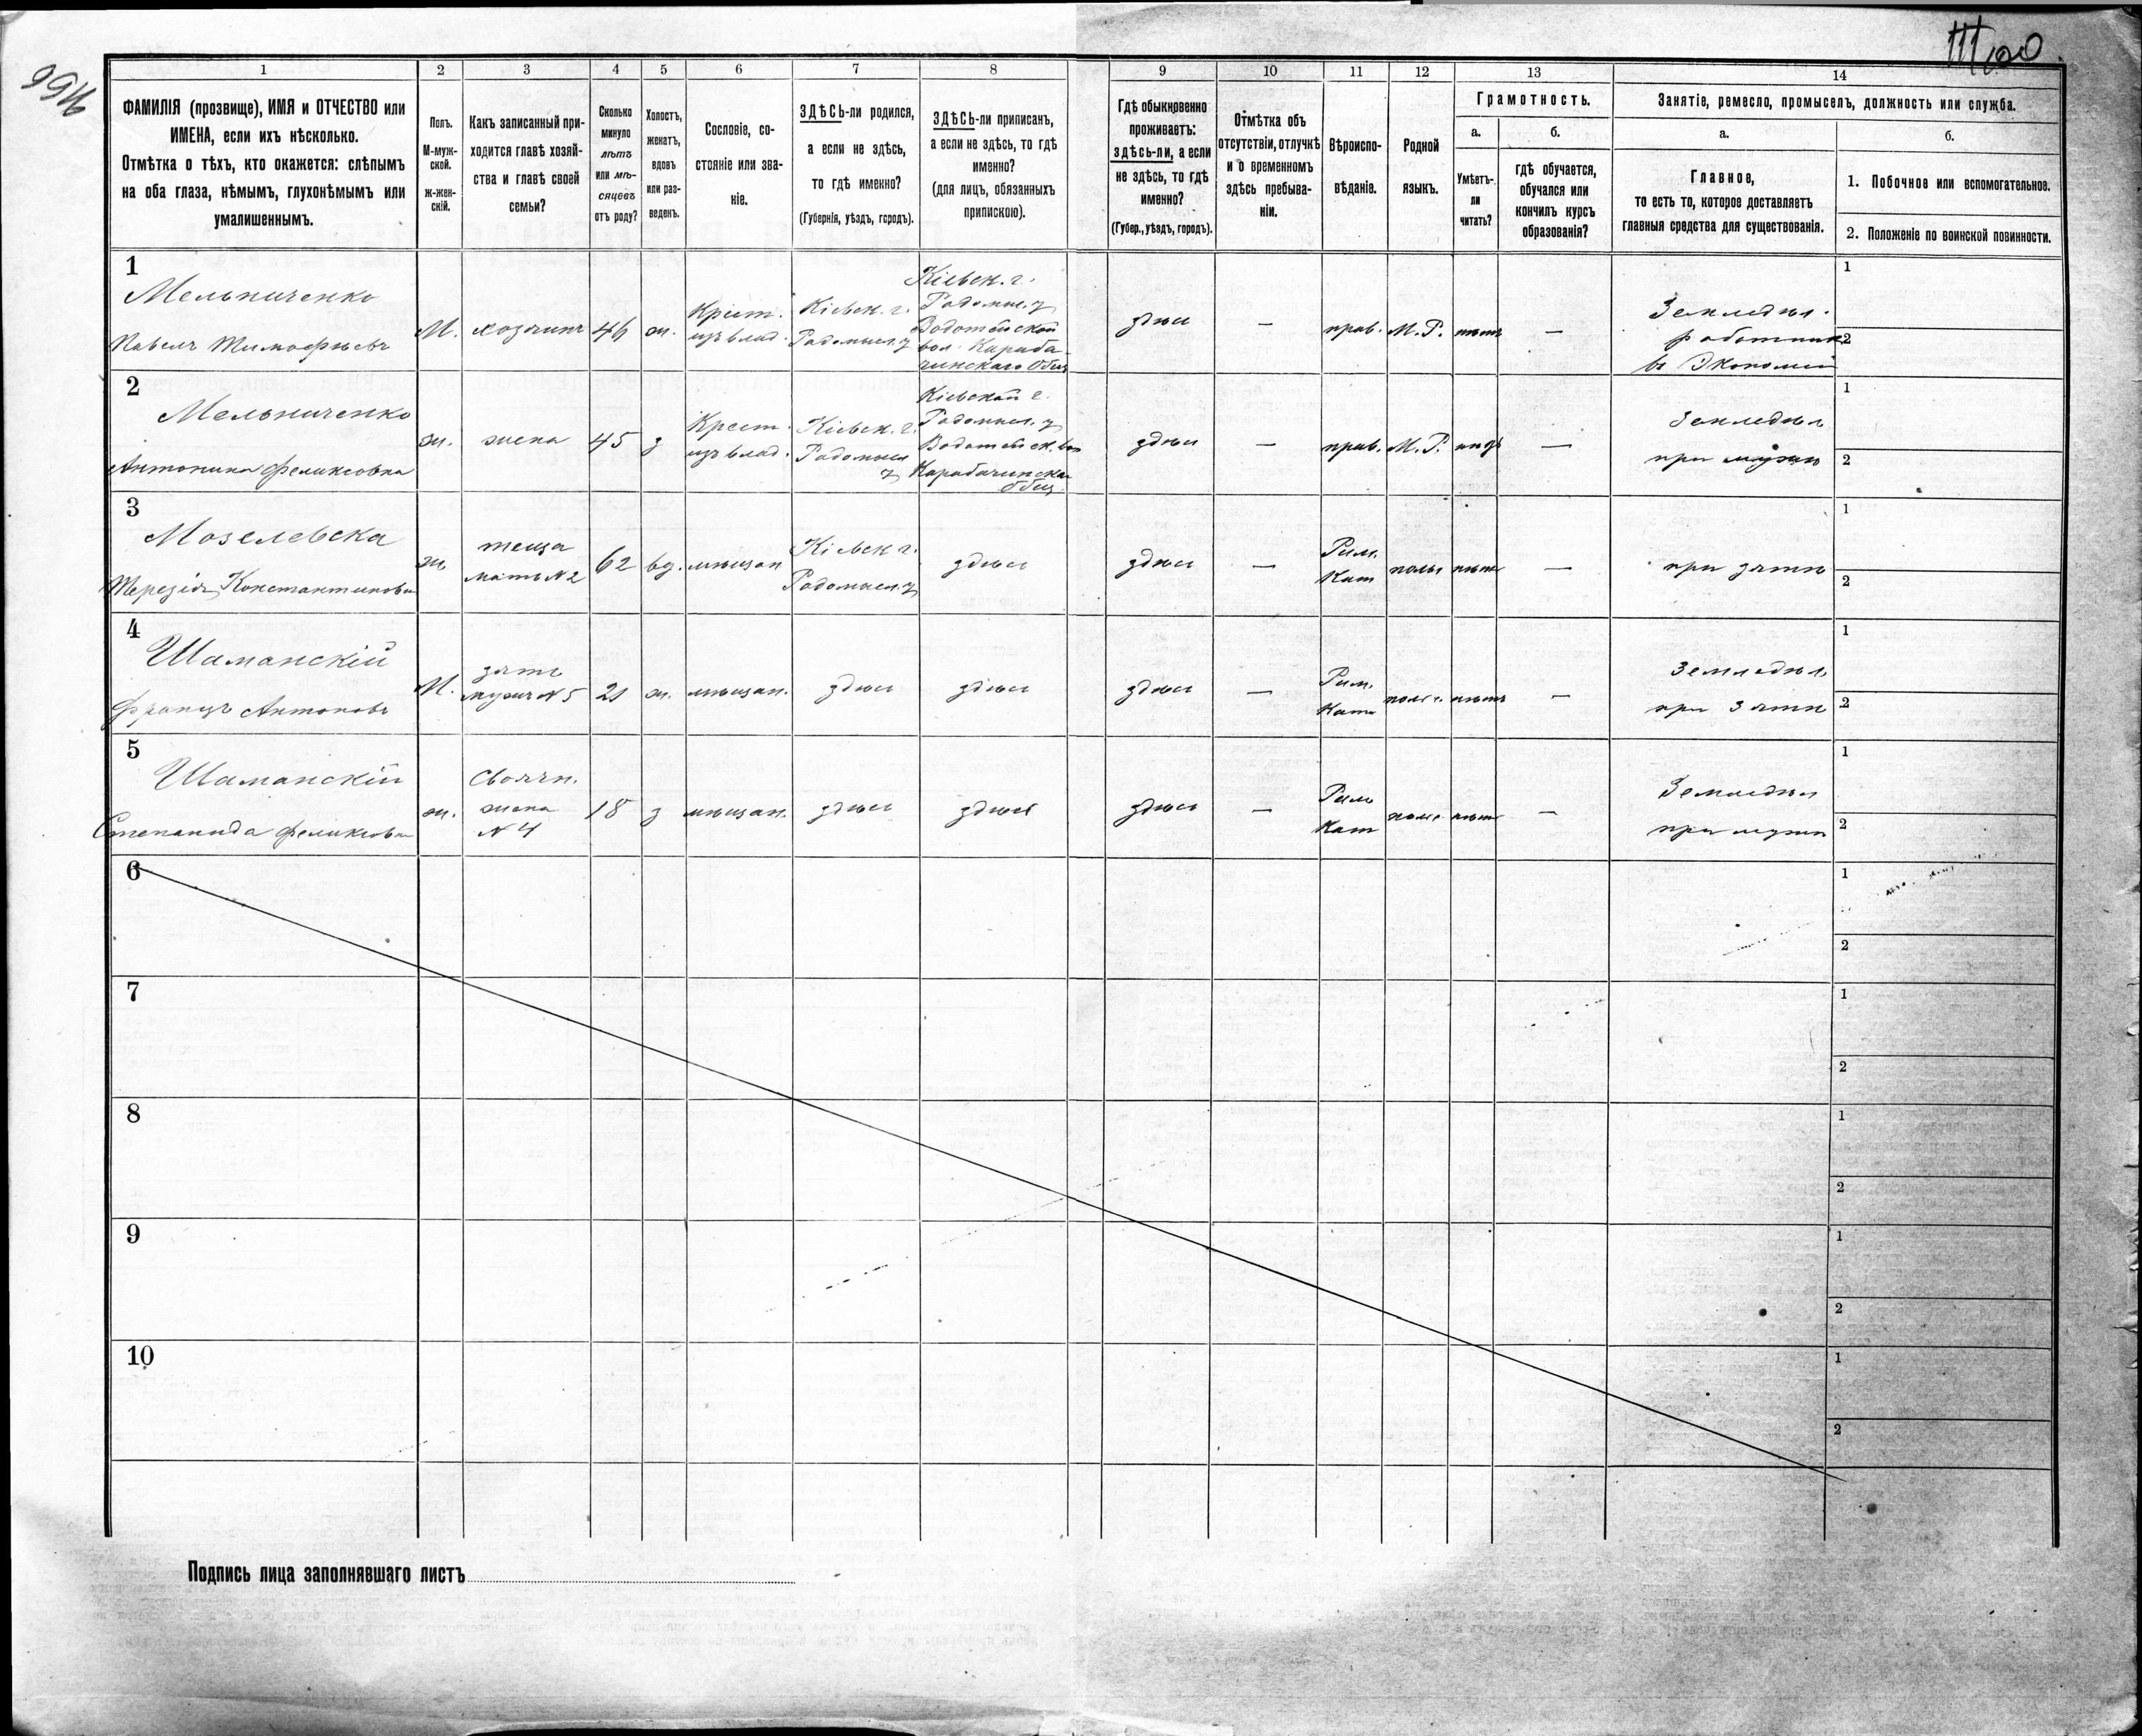 1 2 3 4 5 6 7 8 9 10 11 12 13 14
ФАМИЛІЯ (прозвище), ИМЯ и ОТЧЕСТВО или
ИМЕНА, если ихъ нѣсколько.
Отмѣтка о тѣхъ, кто окажется: слѣпымъ
на оба глаза, нѣмымъ, глухонѣмымъ или
умалишеннымъ.
Полъ.
М-муж-
ской.
Ж-жен-
скій.
Какъ записанный при-
ходится главѣ хозяй-
ства и главѣ своей
семьи?
Сколько
минуло
лѣтъ
или мѣ-
сяцевъ
отъ роду?
Холостъ,
женатъ,
вдовъ
или раз-
веденъ.
Сословіе, со-
стояніе или зва-
ніе.
ЗДѢСЬ-ли родился,
а если не здѣсь,
то гдѣ именно?
(Губернія, уѣздъ, городъ).
ЗДѢСЬ-ли приписанъ,
а если не здѣсь, то гдѣ
именно?
(для лицъ, обязанныхъ
припискою).
Гдѣ обыкновенно
проживаетъ:
здѣсь-ли, а если
не здѣсь, то гдѣ
именно?
(Губер., уѣздъ, городъ).
Отмѣтка объ
отсутствіи, отлучкѣ
и о временномъ
здѣсь пребыва-
ніи.
Вѣроиспо-
вѣданіе.
Родной
языкъ.
Грамотность.
а.
Умѣетъ-
ли
читать?
б.
гдѣ обучается,
обучался или
кончилъ курсъ
образованія?
Занятіе, ремесло, промыселъ, должность или служба.
а.
Главное,
то есть то, которое доставляетъ
главныя средства для существованія.
б.
1. Побочное или вспомогательное.
2. Положеніе по воинской повинности.
1
Мельниченко
Павелъ Тимофѣевъ
М.
хозяинъ
46
ж.
Крест.
изъ влад.
Кіевск. г.
Радомысл. у
Кіевск. г.
Радомыс. у
Водотыйской
вол. Караба-
чинскаго Общ
здѣсь
—
прав.
М. Р.
нѣтъ
—
Земледѣл.
работникъ
въ Экономіи
1
2
2
Мельниченко
Антонина Феликсовна
ж.
жена
45
з
Крест.
изъ влад.
Кіевск. г.
Радомысл
у
Кіевской г.
Радомысл. у
Водотыйск. вол
Карабачинска
общ.
здѣсь
—
прав.
М. Р.
—
Земледѣл
при мужѣ
1
2
3
Мозелевска
Терезія Константиновн
ж
теща
мать N 2
62
вд.
мѣщан
Кіевск г.
Радомысл. у
здѣсь
здѣсь
—
Рим.
Кат
польс
нѣтъ
—
при зятѣ
1
2
4
Шаманскій
Францъ Антоновъ
М.
зять
мужъ N 5
21
ж.
мѣщан.
здѣсь
здѣсь
здѣсь
—
Рим.
Кат
польс.
нѣтъ
—
Земледѣл
при зятѣ
1
2
5
Шаманскій
Степанида Феликсовн
ж.
Своячн.
жена
N 4
18
з
мѣщан.
здѣсь
здѣсь
здѣсь
—
Рим
Кат
польс
нѣтъ
—
Земледѣл
при мужѣ
1
2
6
1
2
7
1
2
8
1
2
9
1
2
10
1
2
Подпись лица заполнявшаго листъ